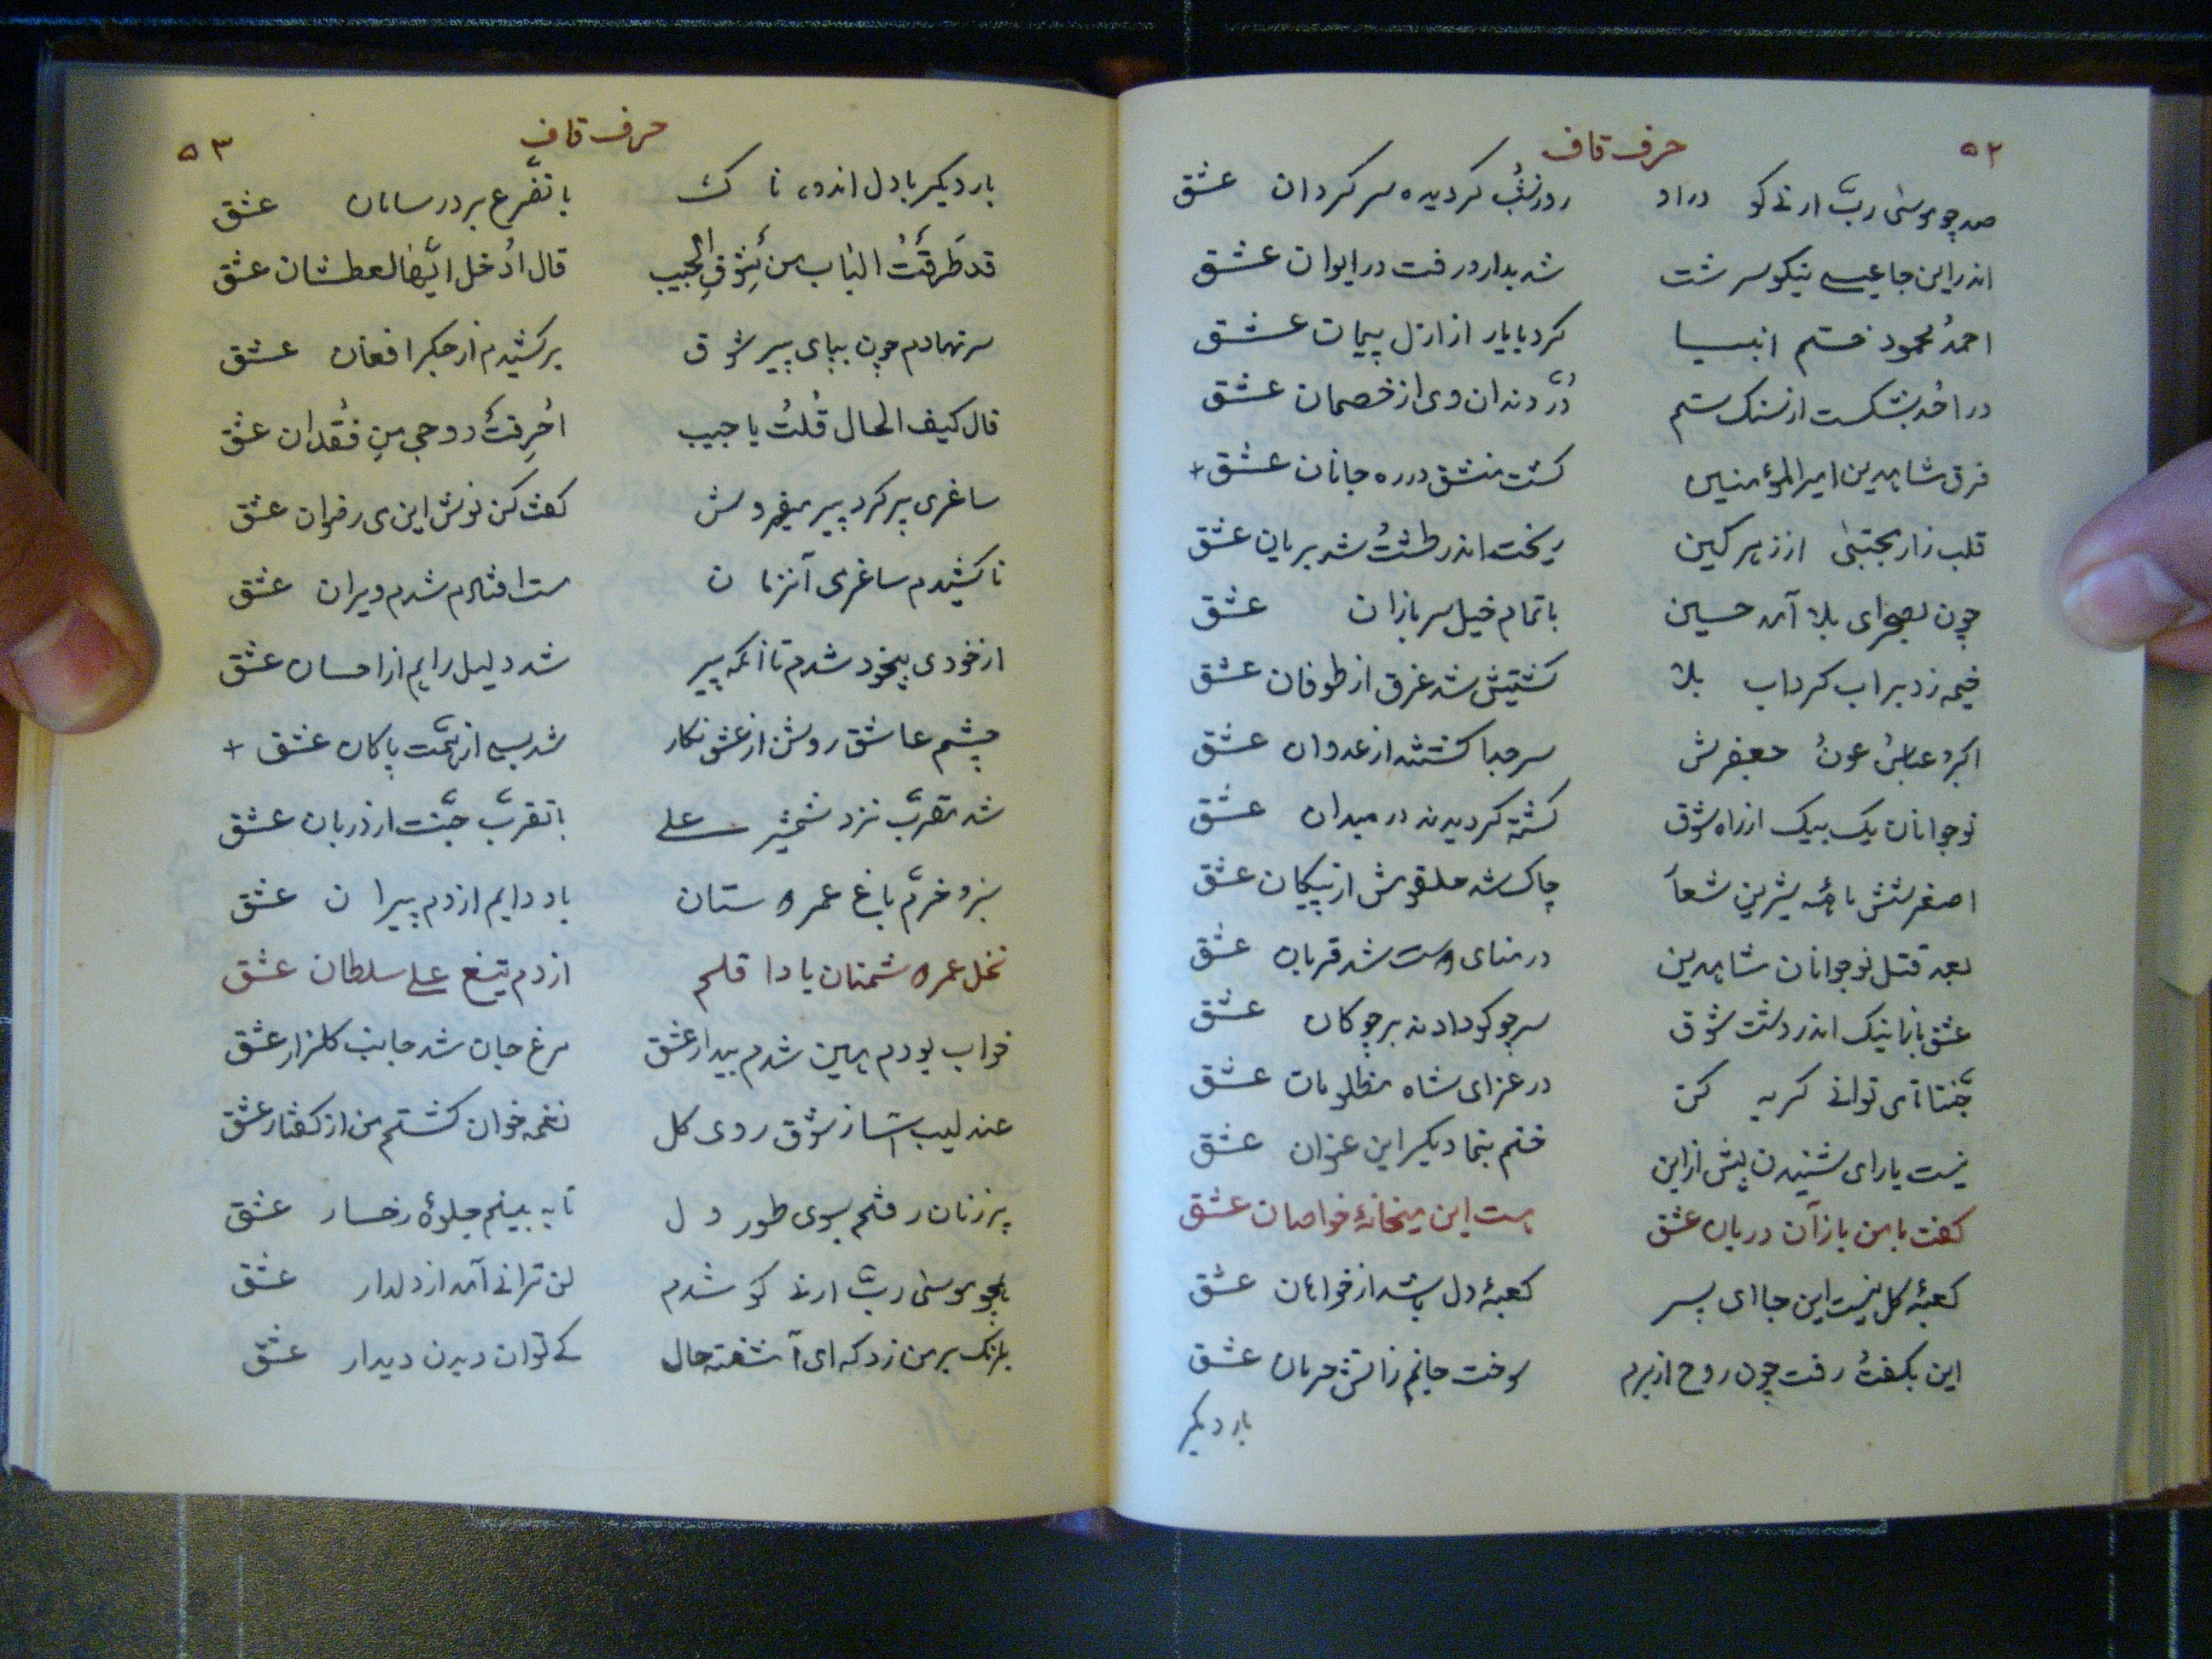 ۵۲
حرف قاف
صد چو موسی ربّ ارنے کو در او روز و شب کردیده سرکردان عشق
اندر این جا عیسی نیکو سرشت شد بدار و رفت در ایوان عشق
احمد محمود ختم انبیا کرد با یار از ازل پیمان عشق
در احد بشکست از سنک ستم درّ دندان وی از خصمان عشق
فرق شاه دین امیرالمؤمنین کشت منشق در ره جانان عشق +
قلب زار مجتبی از زهر کین ریخت اندر طشت شد بریان عشق
چون بصحرای بلا آمد حسین با تمام خیل سربازان عشق
خیمه زد بر اب کرداب بلا کشتیش شد غرق از طوفان عشق
اکبر و عباس و عون و جعفرش سر جدا کشتند از عدوان عشق
نوجوانان یک بیک از راه شوق کشته کردیدند در میدان عشق
اصغر ششماهه شیرین چاک شد حلقومش از پیکان عشق
بعد قتل نوجوانان شاه دین در منای دوست شد قربان عشق
عشق بازانیک اندر دشت شوق سر چو کو دادند بر چوکان عشق
جنّتا تا می توانے کریه کن در عزای شاه مظلومان عشق
نیست یارای شنیدن بیش از این ختم بنما دیکر این عنوان عشق
کفت با من باز آن دربان عشق هست این میخانهٔ خواصان عشق
کعبهٔ کل نیست این جا ای پسر کعبهٔ دل باشد از خواهان عشق
این بکفت و رفت چون روح از برم سوخت جانم ز اتش حرمان عشق
بار دیکر
۵۳
حرف قاف
بار دیکر با دل اندوه ناک با تضرّع بر در سامان عشق
قد طرقت الباب من شوق الحبیب قال ادخل ایّها العطشان عشق
سر نهادم چون بپای پیر شوق برکشیدم از جکر افغان عشق
قال کیف الحال قلت یا حبیب احرقت روحی من فقدان عشق
ساغری پر کرد پیر میفروش کفت کن نوش این می رضوان عشق
تا کشیدم ساغری آنزمان مست افتادم شدم ویران عشق
از خودی بیخود شدم تا آنکه پیر شد دلیل راهم از احسان عشق
چشم عاشق روشن از عشق نکار شد بسی از همّت پاکان عشق +
شد مقرّب نزد شمشیر علے با تقرب جنّت از دربان عشق
سبز و خرّم باغ عمر دوستان باد دایم از دم پیران عشق
نخل عمر دشمنان بادا قلم از دم تیغ علے سلطان عشق
خواب بودم همین شدم بیدار عشق مرغ جان شد جانب کلزار عشق
عندلیب آسا ز شوق روی کل نغمه خوان کشتم من از کفتار عشق
پر زنان رفتم بسوی طور دل تا به بینم جلوهٔ رخسار عشق
همچو موسی ربّ ارنے کو شدم لن ترانے آمد از دلدار عشق
بانک بر من زد که ای آشفته حال کے توان دیدن دیدار عشق